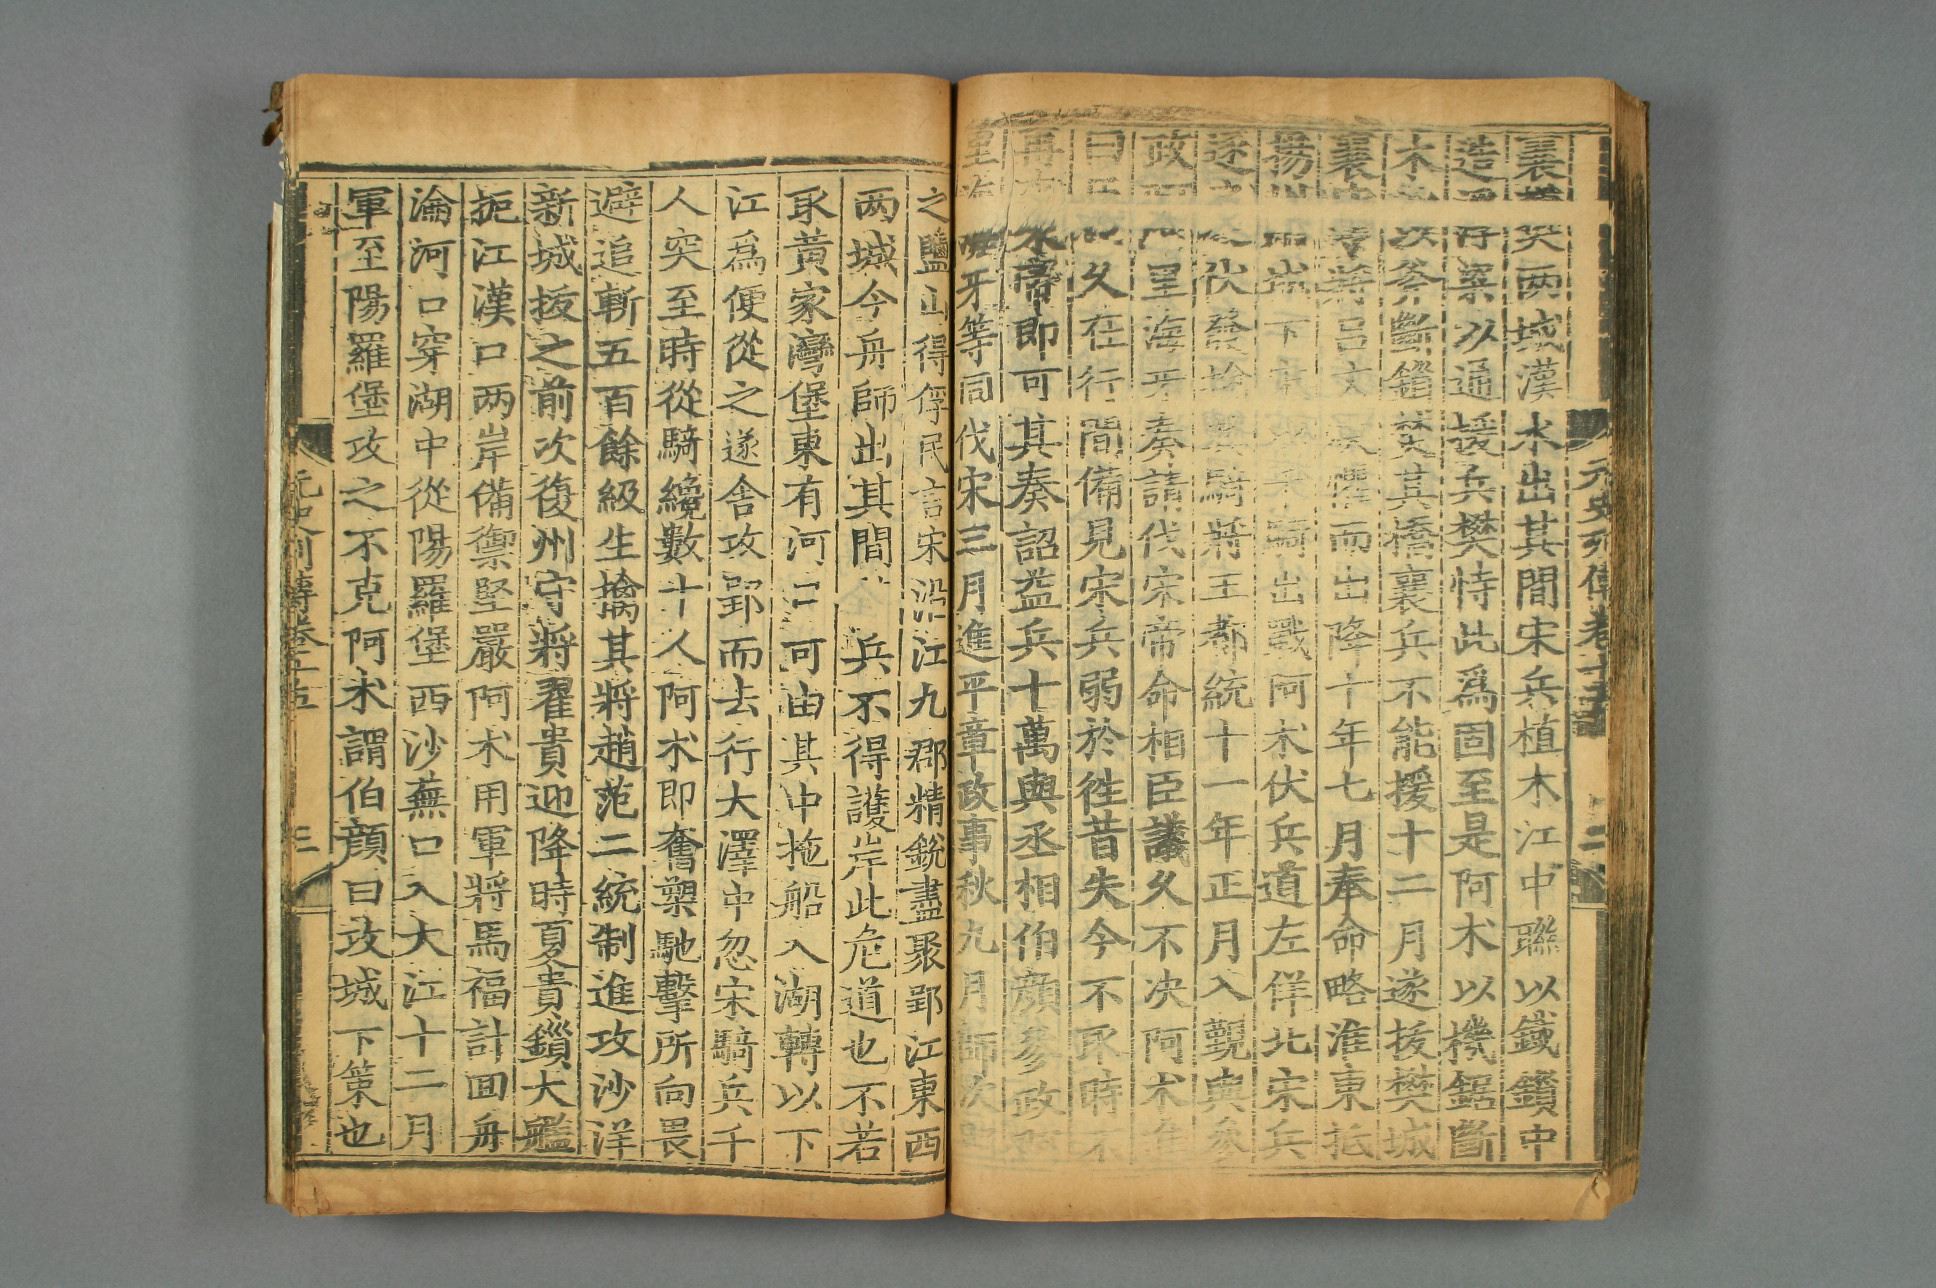 元史列傳卷十五 二
襄樊两城漢水出其間宋兵植木江中聯以鐵鎖中
造浮梁以通援兵樊恃此爲固至是阿术以機鋸斷
木以斧斷鎖焚其橋襄兵不能援十二月遂拔樊城
襄守將呂文懼而出降十年七月奉命略淮東抵
揚下騎出戰阿术伏兵道左佯北宋兵
逐之伏發擒騎將王都統十一年正月入覲與參
政里海牙奏請伐宋帝命相臣議久不決阿术進
曰久在行間備見宋兵弱於徃昔失今不取時不
再來帝即可其奏詔益兵十萬與丞相伯顔參政阿
里海牙等同伐宋三月進平章政事秋九月師次郢
之鹽山得俘民言宋沿江九郡精銳盡聚郢江東西
两城今舟師出其間兵不得護岸此危道也不若
取黃家灣堡東有河口可由其中拖船入湖轉以下
江爲便從之遂舍攻郢而去行大澤中忽宋騎兵千
人突至時從騎纔數十人阿术即奮槊馳擊所向畏
避追斬五百餘級生擒其將趙范二統制進攻沙洋
新城拔之前次復州守將翟貴迎降時夏貴鎖大艦
扼江漢口两岸備禦堅嚴阿术用軍將馬福計回舟
淪河口穿湖中從陽羅堡西沙蕪口入大江十二月
軍至陽羅堡攻之不克阿术謂伯顔曰攻城下策也
元史列傳卷十五 三